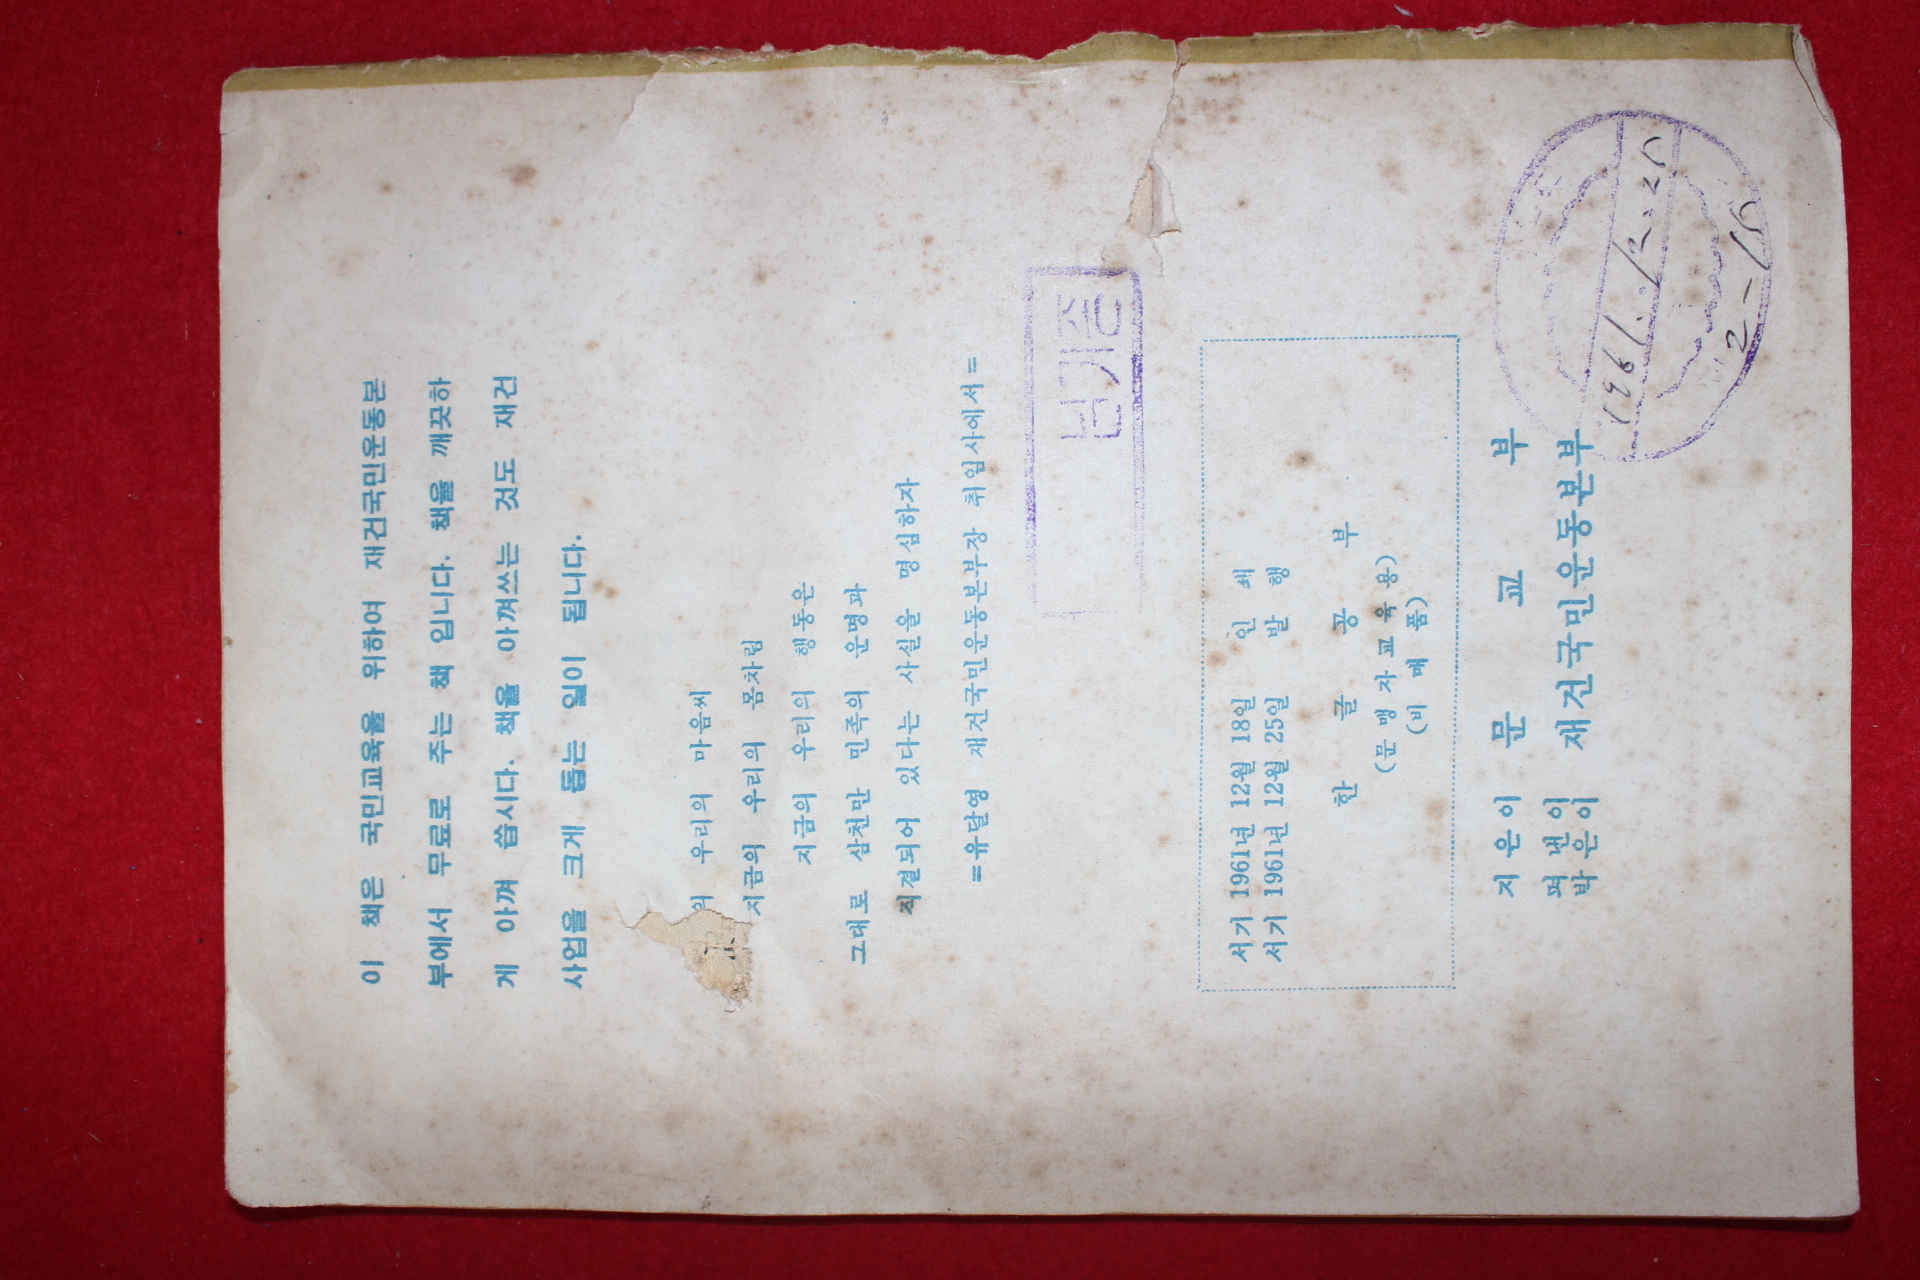 이 책은 국민교육을 위하여 재건국민운동본
부에서 무료로 주는 책 입니다. 책을 깨끗하
게 아껴 씁시다. 책을 아껴쓰는 것도 재건
사업을 크게 돕는 일이 됩니다.
의 우리의 마음씨
지금의 우리의 몸차림
지금의 우리의 행동은
그대로 삼천만 민족의 운명과
직결되어 있다는 사실을 명심하자
=유달영 재건국민운동본부장 취임사에서=
남기준
서기 1961년 12월 18일 인쇄
서기 1961년 12월 25일 발행
한글공부
(문맹자교육용)
(비매품)
지은이 문교부
펴낸이
박은이 재건국민운동본부
1961.12.20
2-15